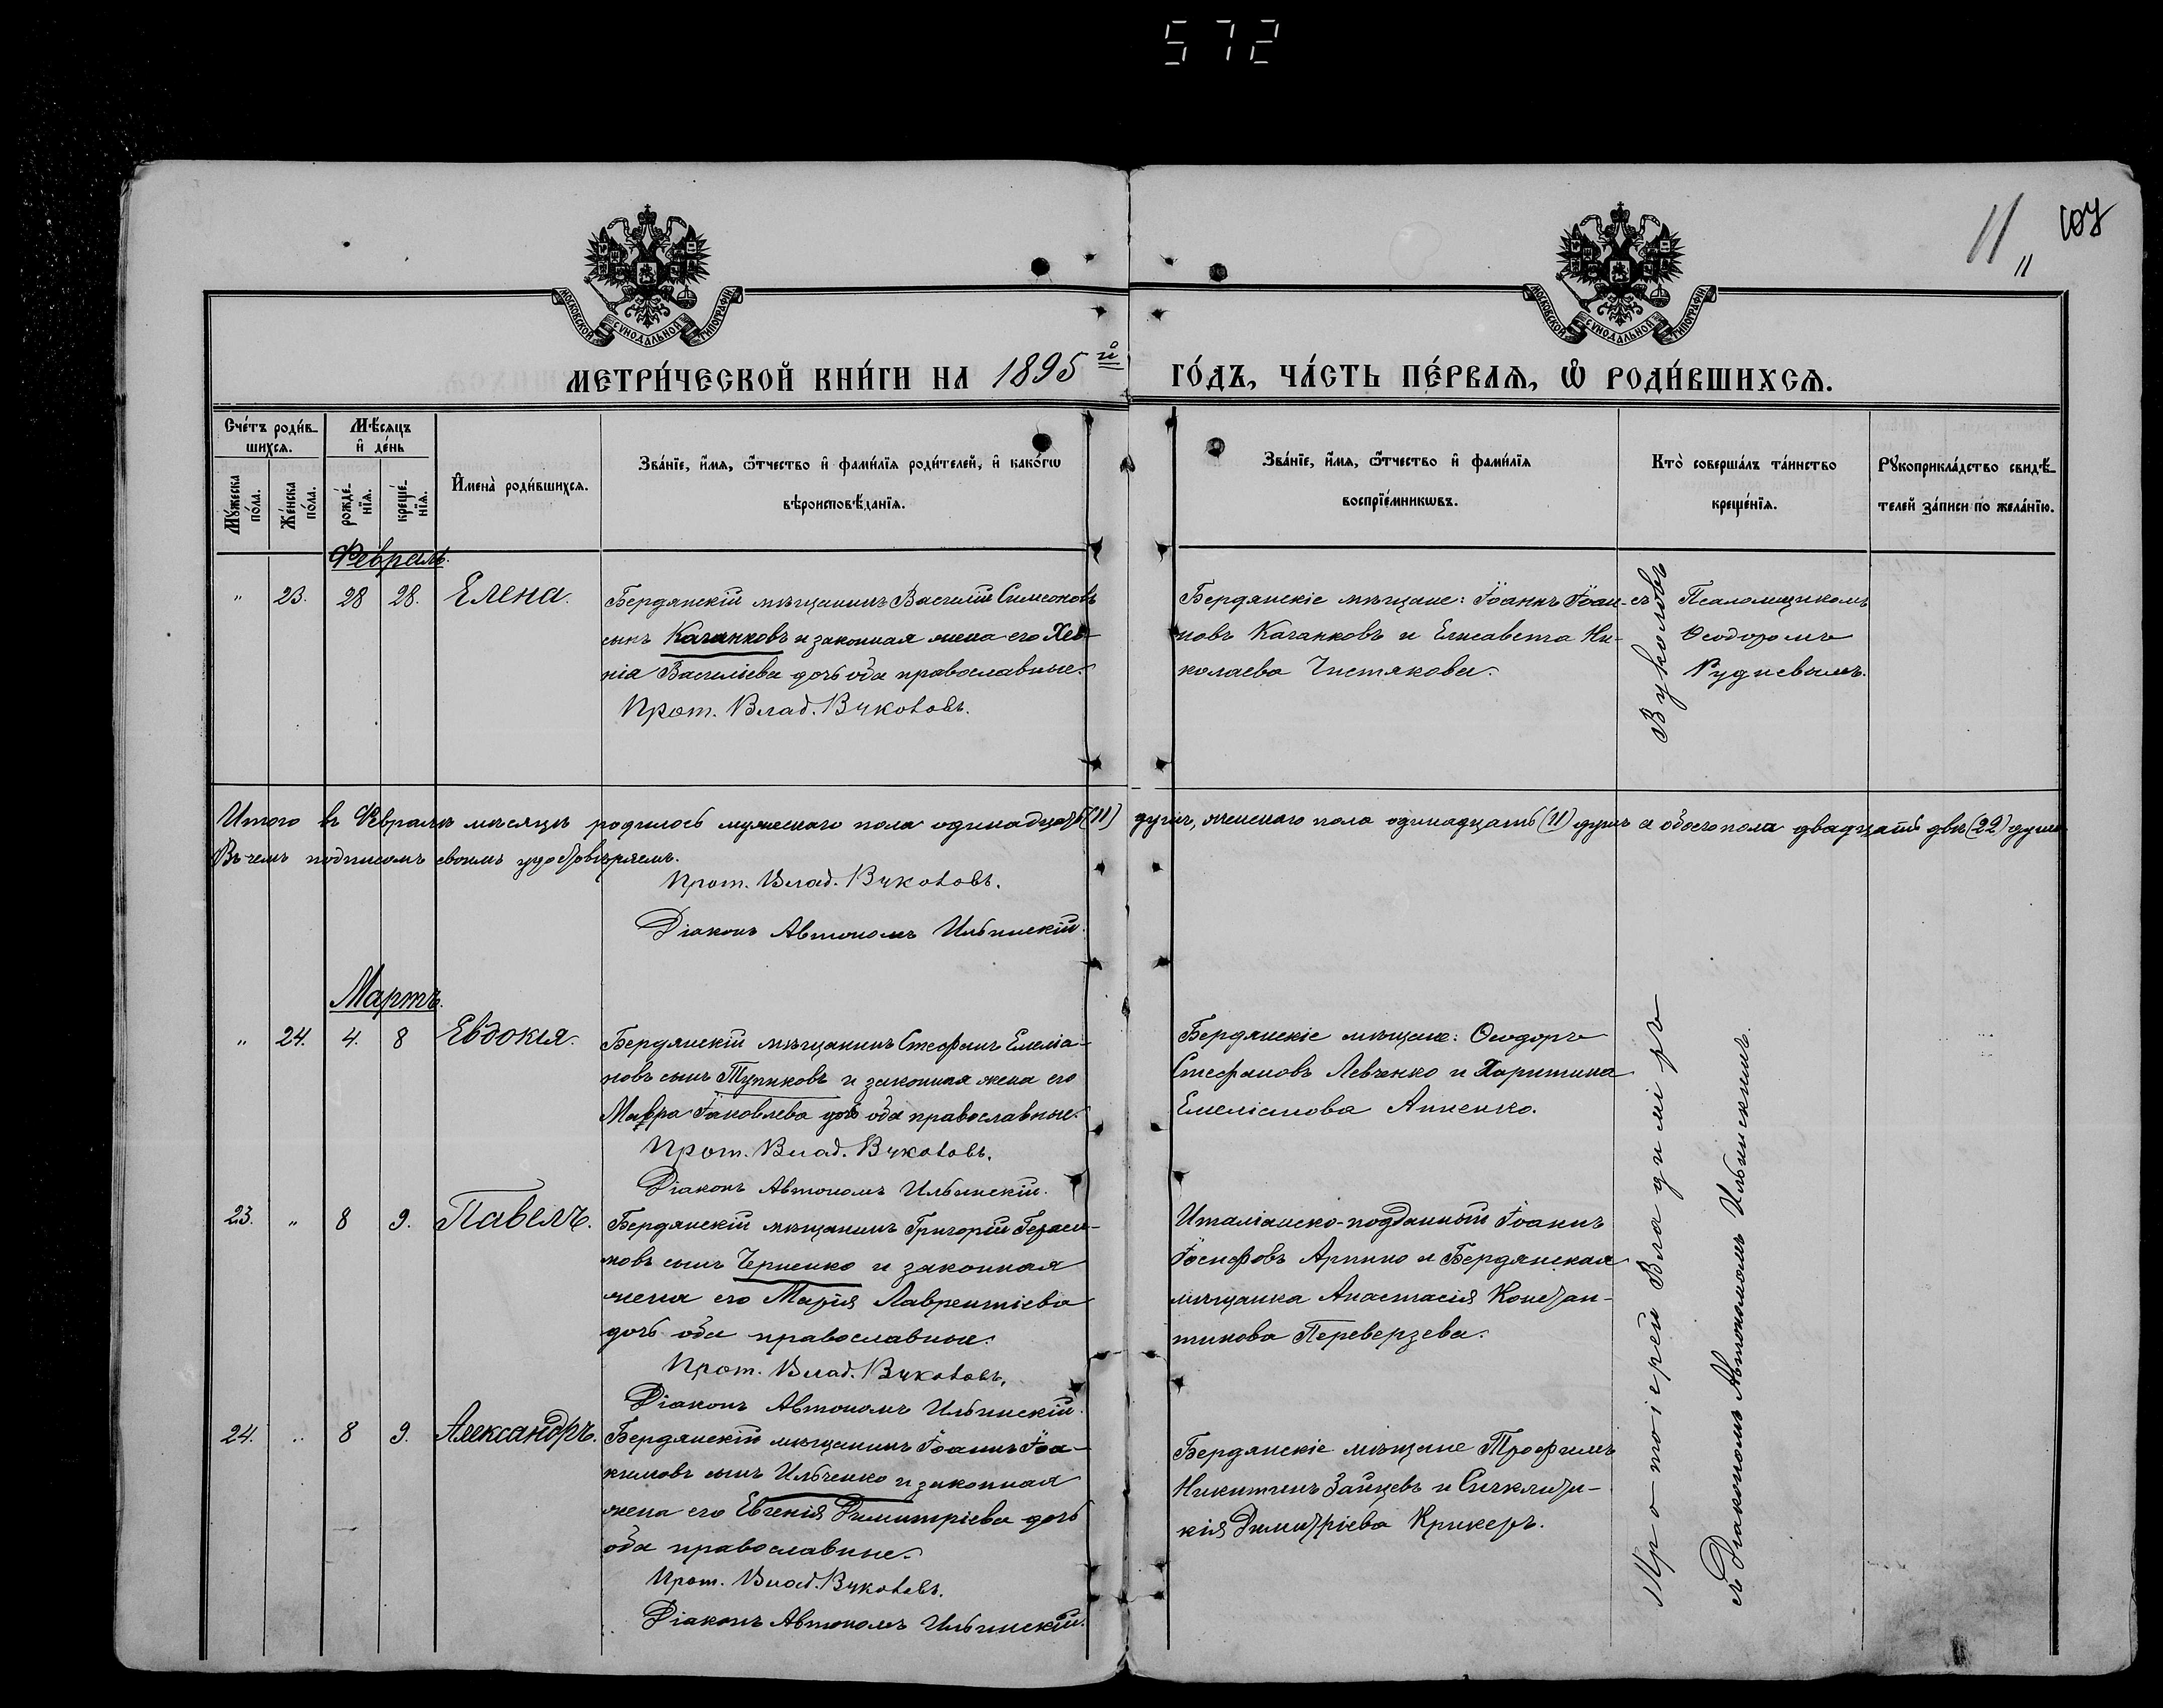 572
11 107
11
МОСКОВСКОЙ СѴНОДАЛЬНОЙ ТИПОГРАФІИ
МОСКОВСКОЙ СѴНОДАЛЬНОЙ ТИПОГРАФІИ
МЕТРИ́ЧЕСКОЙ КНИ́ГИ НА 1895й ГО́ДЪ, ЧА́СТЬ ПЕ́РВАЯ, Ѡ РОДИ́ВШИХСѦ.
Сче́тъ роди́в-
шихсѧ.
Мꙋжеска
по́ла.
Же́нска
по́ла.
Мѣ́сѧцъ
и҆ де́нь
рожде́-
нїѧ.
креще́-
нїѧ.
И҆мена̀ роди́вшихсѧ.
Зва́нїе, и҆́мѧ, ѻ҆́тчество и҆ фами́лїѧ роди́телей, и҆ како́гѡ
вѣроисповѣ́данїѧ.
Зва́нїе, и҆́мѧ, ѻ҆́тчество и҆ фами́лїѧ
воспрїе́мникѡвъ.
Кто̀ соверша́лъ та́инство
креще́нїѧ.
Рꙋкоприкла́дство свидѣ́-
телей за́писи по жела́нїю.
Февраль.
" 23. 28 28. Елена.
Бердянскій мѣщанинъ Василій Симеоновъ
сынъ Качанковъ и законная жена его Ксе-
нія Васильева дочь оба православные.
Прот. Влад. Вуколовъ.
Бердянскіе мѣщане: Іоаннъ Іоан-
новъ Качанковъ и Елисавета Ни-
колаева Чистякова.
съ Псаломщикомъ
Ѳеодоромъ
Рудневымъ.
Итого въ Февралѣ мѣсяцѣ родилось мужескаго пола одинадцать (11) душъ, женскаго пола одинадцать (11) душъ а обоего пола двадцать двѣ (22) души
Въ чемъ подписомъ своимъ удостовѣряемъ.
Прот. Влад. Вуколовъ.
Діаконъ Автономъ Ильинскій.
Мартъ.
" 24. 4. 8 Евдокія.
Бердянскій мѣщанинъ Стефанъ Емеліа-
новъ сынъ Тупиковъ и законная жена его
Мавра Іаковлева дочь оба православные.
Прот. Влад. Вуколовъ.
Діаконъ Автономъ Ильинскій.
Бердянскіе мѣщане: Ѳеодоръ
Стефановъ Левченко и Харитина
Емеліанова Анненко.
23. " 8 9. Павелъ.
Бердянскій мѣщанинъ Григорій Гераси-
мовъ сынъ Черненко и законная
жена его Марія Лаврентіева
дочь оба православные.
Прот. Влад. Вуколовъ.
Діаконъ Автономъ Ильинскій.
Италіанско-подданный Іоаннъ
Іосифовъ Арпино и Бердянская
мѣщанка Анастасія Констан-
тинова Переверзева.
24. " 8 9. Александръ.
Бердянскій мѣщанинъ Іоаннъ Іоа-
кимовъ сынъ Ильченко и законная
жена его Евгенія Димитріева дочь
оба православные.
Прот. Влад. Вуколовъ.
Діаконъ Автономъ Ильинскій.
Бердянскіе мѣщане Трофимъ
Никитинъ Зайцевъ и Сѵнклити-
кія Димитріева Крикеръ.
Протоіерей Владиміръ Вуколовъ
съ Діакономъ Автономомъ Ильинскимъ.